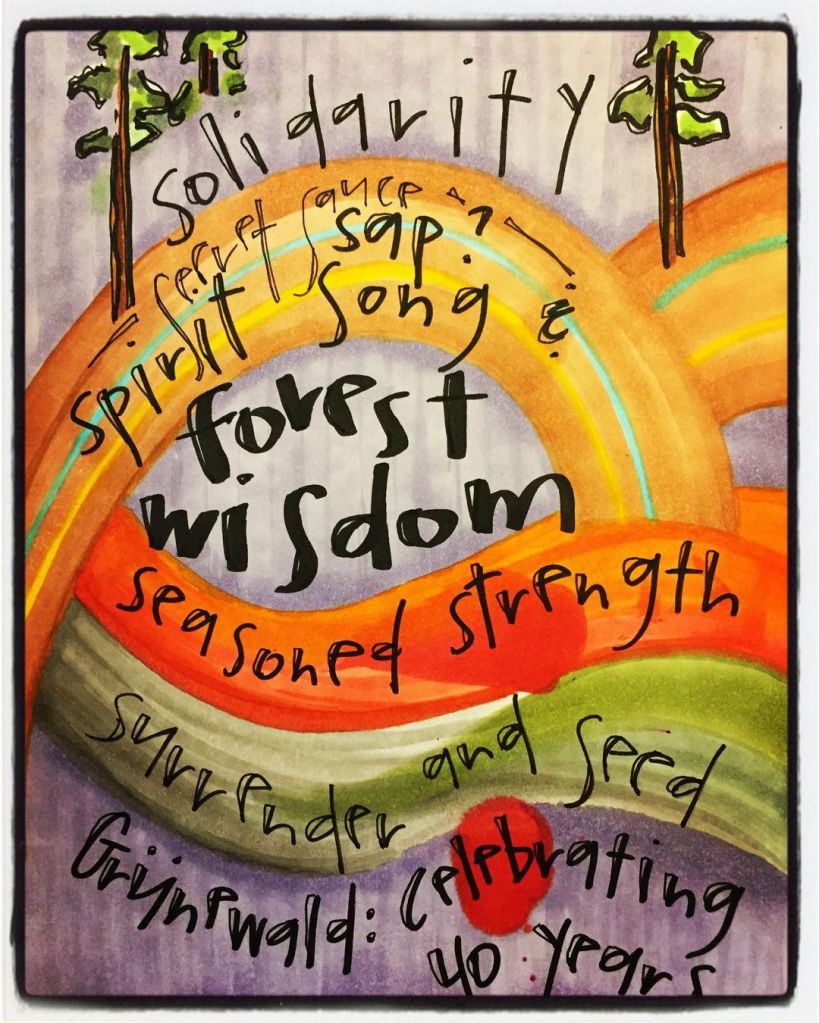 solidarity
secret sauce ~?~
sap?
spirit song &
forest
wisdom
seasoned strength
surrender and seed
Grünewald: Celebrating
40 years